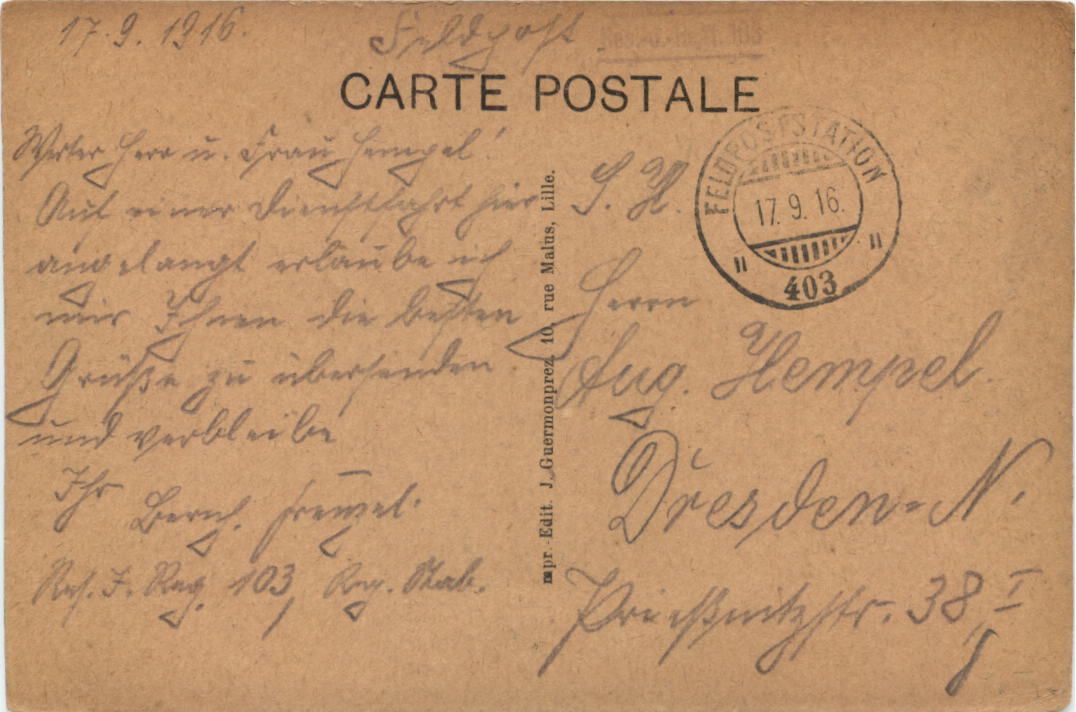 17.9.1916.
Feldpost
CARTE POSTALE
Werter Herr u. Frau Hempel!
Auf einer Dienstfahrt hier
angelangt erlaube ich
mir Ihnen die besten
Grüße zu übersenden
und verbleibe
Ihr Bernh.
Res. I. Reg. 103, Reg. Stab.
mpr.-Edit. J. Guermonprez, 10, rue Malus, Lille.
FELDPOSTSTATION
17.9.16.
403
S. H.
Herrn
Aug. Hempel.
Dresden-N.
Prießnitzstr. 38, I